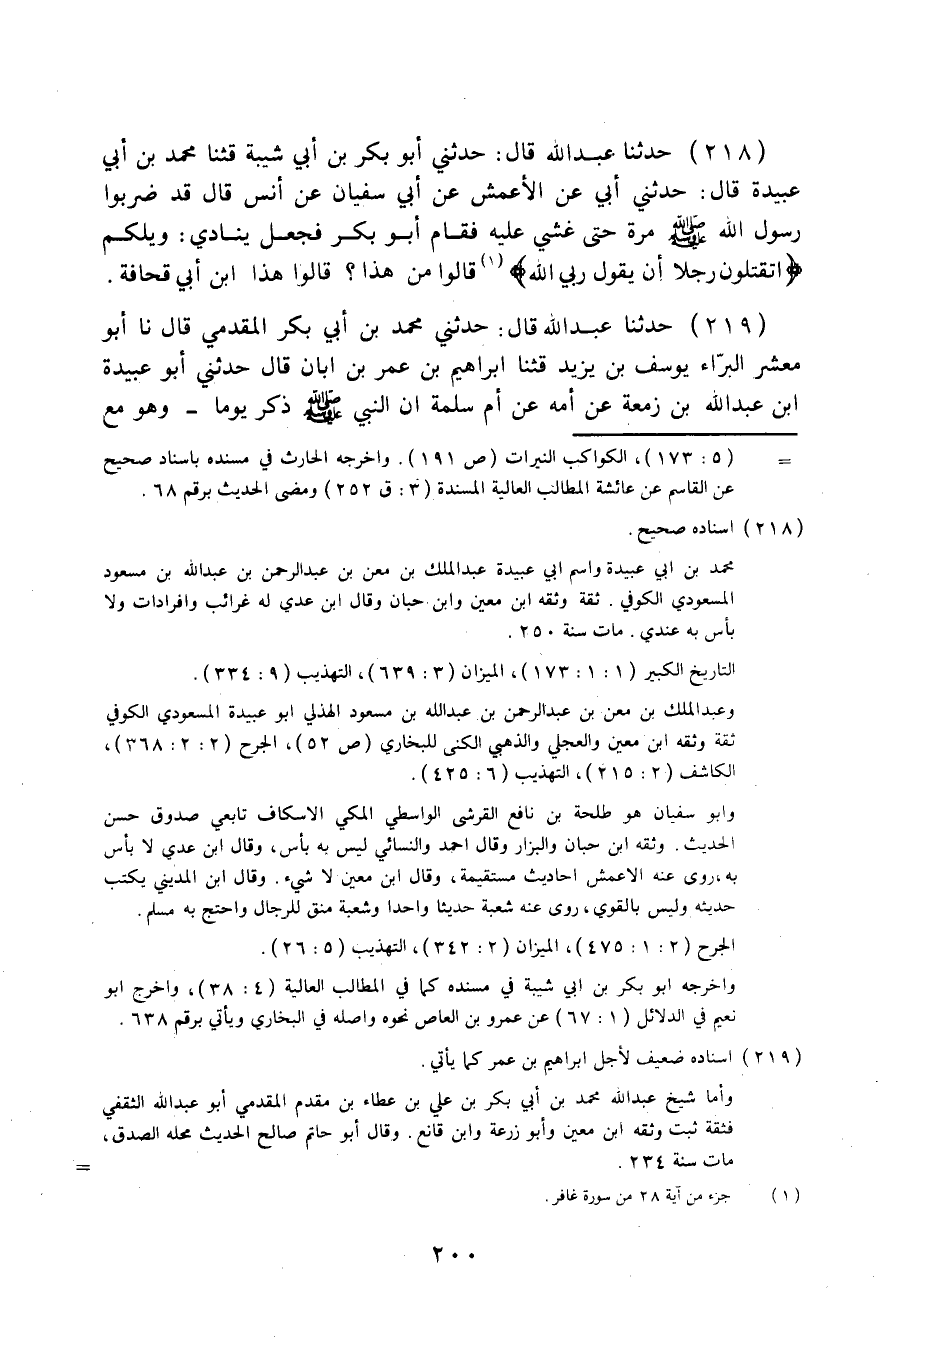 (٢١٨) حدثنا عبدالله قال: حدثني أبو بكر بن أبي شيبة قثنا محمد بن أبي
عبيدة قال: حدثني أبي عن الأعمش عن أبي سفيان عن أنس قال قد ضربوا
رسول الله ﷺ مرة حتى غشي عليه فقام أبو بكر فجعل ينادي: ويلكم
﴿اتقتلون رجلا أن يقول ربي الله﴾(١) قالوا من هذا؟ قالوا هذا ابن أبي قحافة.
(٢١٩) حدثنا عبدالله قال: حدثني محمد بن أبي بكر المقدمي قال نا أبو
معشر البرّاء يوسف بن يزيد قثنا ابراهيم بن عمر بن ابان قال حدثني أبو عبيدة
ابن عبدالله بن زمعة عن أمه عن أم سلمة ان النبي ﷺ ذكر يوما - وهو مع
= (٥: ١٧٣)، الكواكب النيرات (ص ١٩١). واخرجه الحارث في مسنده باسناد صحيح
عن القاسم عن عائشة المطالب العالية المسندة (٣: ق ٢٥٢) ومضى الحديث برقم ٦٨.
(٢١٨) اسناده صحيح.
محمد بن ابي عبيدة واسم ابي عبيدة عبدالملك بن معن بن عبدالرحمن بن عبدالله بن مسعود
المسعودي الكوفي. ثقة وثقه ابن معين وابن حبان وقال ابن عدي له غرائب وافرادات ولا
بأس به عندي. مات سنة ٢٥٠.
التاريخ الكبير (١: ١: ١٧٣)، الميزان (٣: ٦٣٩)، التهذيب (٩: ٣٣٤).
وعبدالملك بن معن بن عبدالرحمن بن عبدالله بن مسعود الهذلي ابو عبيدة المسعودي الكوفي
ثقة وثقه ابن معين والعجلي والذهبي الكنى للبخاري (ص ٥٢)، الجرح (٢: ٢: ٣٦٨)،
الكاشف (٢: ٢١٥)، التهذيب (٦: ٤٢٥).
وابو سفيان هو طلحة بن نافع القرشى الواسطي المكي الاسكاف تابعي صدوق حسن
الحديث. وثقه ابن حبان والبزار وقال احمد والنسائي ليس به بأس، وقال ابن عدي لا بأس
به، روى عنه الاعمش احاديث مستقيمة، وقال ابن معين لا شيء. وقال ابن المديني يكتب
حديثه وليس بالقوي، روى عنه شعبة حديثا واحدا وشعبة منق للرجال واحتج به مسلم.
الجرح (٢: ١: ٤٧٥)، الميزان (٢: ٣٤٢)، التهذيب (٥: ٢٦).
واخرجه ابو بكر بن ابي شيبة في مسنده كما في المطالب العالية (٤: ٣٨)، واخرج ابو
نعيم في الدلائل (١: ٦٧) عن عمرو بن العاص نحوه واصله في البخاري ويأتي برقم ٦٣٨.
(٢١٩) اسناده ضعيف لأجل ابراهيم بن عمر كما يأتي.
وأما شيخ عبدالله محمد بن أبي بكر بن علي بن عطاء بن مقدم المقدمي أبو عبدالله الثقفي
فثقة ثبت وثقه ابن معين وأبو زرعة وابن قانع. وقال أبو حاتم صالح الحديث محله الصدق،
مات سنة ٢٣٤. =
(١) جزء من آية ٢٨ من سورة غافر.
٢٠٠